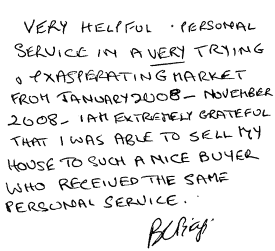 VERY HELPFUL . PERSONAL
SERVICE IN A VERY TRYING
& EXASPERATING MARKET
FROM JANUARY 2008 - NOVEMBER
2008 - I AM EXTREMELY GRATEFUL
THAT I WAS ABLE TO SELL MY
HOUSE TO SUCH A NICE BUYER
WHO RECEIVED THE SAME
PERSONAL SERVICE.